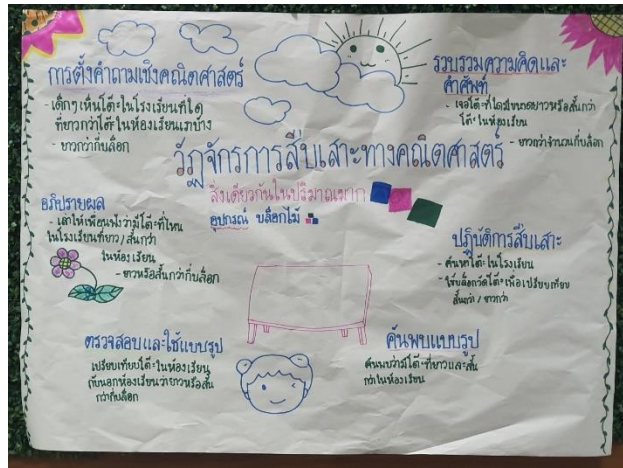 การตั้งคำถามเชิงคณิตศาสตร์
- เด็กๆเห็นโต๊ะในโรงเรียนที่ใด
ที่ยาวกว่าโต๊ะในห้องเรียนเราบ้าง
- ยาวกว่ากี่บล็อก
รวบรวมความคิดและ
คำศัพท์
- เจอโต๊ะที่ใดมีขนาดยาวหรือสั้นกว่า
โต๊ะในห้องเรียน
- ยาวกว่าจำนวนกี่บล็อก
วัฏจักรการสืบเสาะทางคณิตศาสตร์
สิ่งเดียวกันในปริมาณมาก
อุปกรณ์ บล็อกไม้
อภิปรายผล
- เล่าให้เพื่อนฟังว่ามีโต๊ะที่ไหน
ในโรงเรียนที่ยาว/สั้นกว่า
ในห้องเรียน
- ยาวหรือสั้นกว่ากี่บล็อก
ปฏิบัติการสืบเสาะ
- ค้นหาโต๊ะในโรงเรียน
- ใช้บล็อกวัดโต๊ะเพื่อเปรียบเทียบ
สั้นกว่า/ยาวกว่า
ตรวจสอบและใช้แบบรูป
เปรียบเทียบโต๊ะในห้องเรียน
กับนอกห้องเรียนว่ายาวหรือสั้น
กว่ากี่บล็อก
ค้นพบแบบรูป
ค้นพบว่ามีโต๊ะที่ยาวและสั้น
กว่าในห้องเรียน